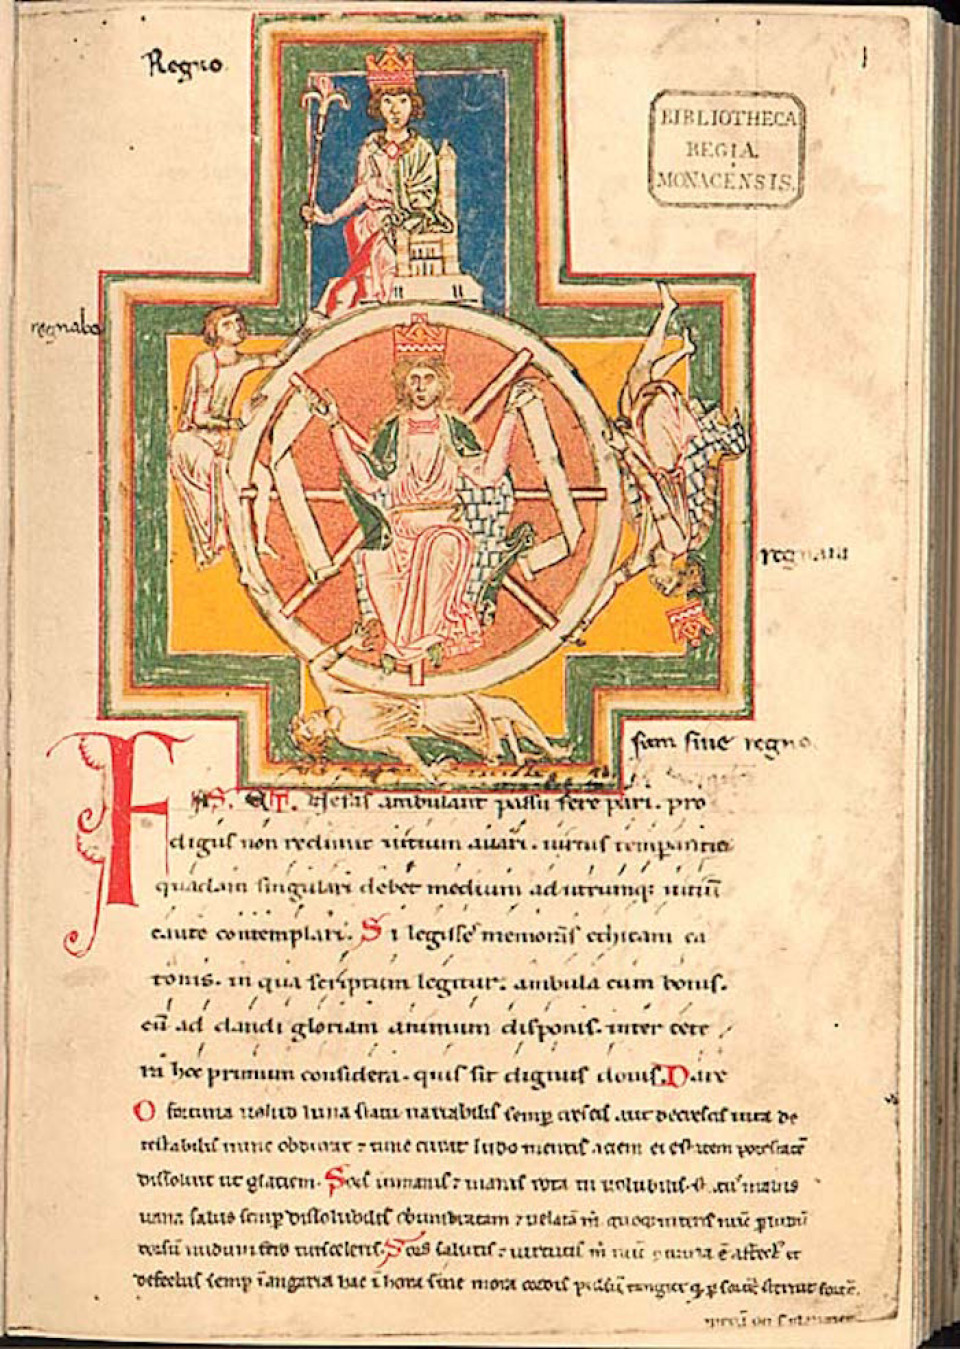 Regno.
1
BIBLIOTHECA
REGIA.
MONACENSIS.
regnabo
regnaui
sum sine regno.
FAS. ET. Nefas ambulant passu fere pari. pro
digus non redimit uitium auari. uirtus temperantia
quadam singulari debet medium ad utrumq; uitiū
caute contemplari. Si legisse memoras ethicam ca
tonis. in qua scriptum legitur. ambula cum bonis.
cū ad dandi gloriam animum disponis. inter cete
ra hoc primum considera. quis sit dignus donis. Dare
O fortuna uelud luna statu uariabilis semp crescis aut decrescis uita de
testabilis nunc obdurat ⁊ tunc curat ludo mentis aciem egestatem potestatē
dissoluit ut glaciem. Sors immanis ⁊ inanis rota tu uolubilis. status malus
uana salus semp dissolubilis obumbratam ⁊ uelatā m̄ quoq; niteris nūc p ludū
dorsū nudum fero tui sceleris. Sors salutis ⁊ uirtutis m̄ nūc ē affect⁹ et
defectus semp ī angaria hac ī hora sine mora cordis pulsū tangite q p sortē sternit fortē.